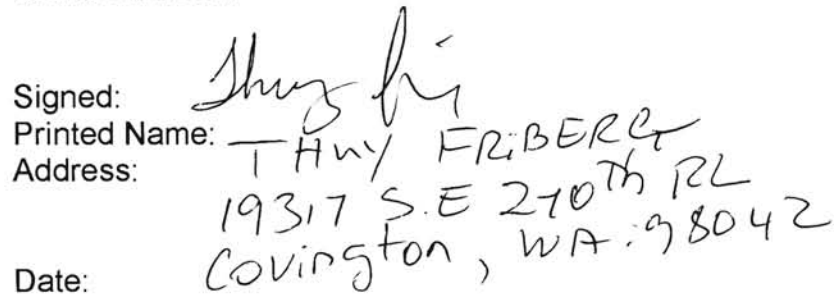 Signed: Thuy Fri
Printed Name: THUY FRiBERG
Address:
19317 S.E 270th PL
Covington, WA. 98042
Date: